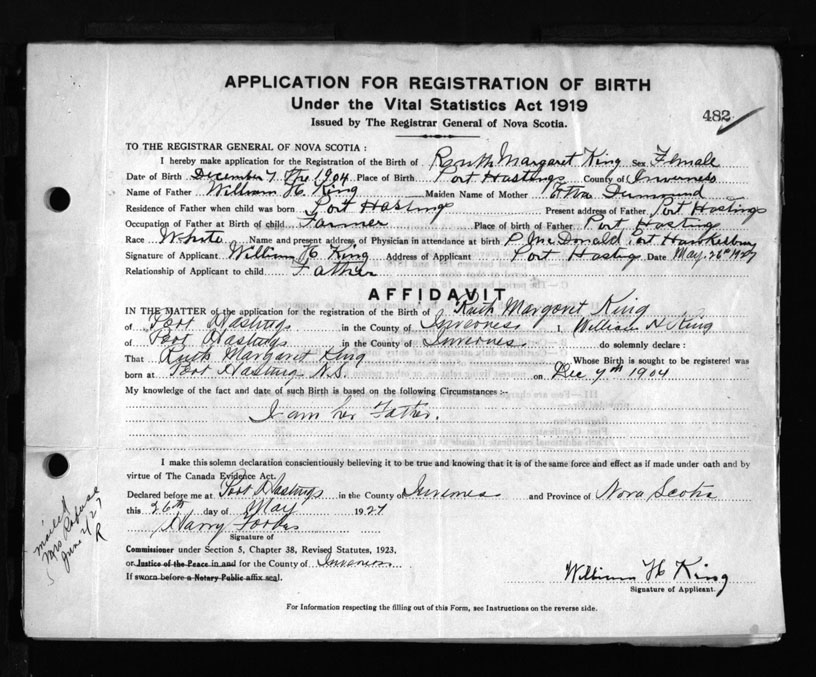 APPLICATION FOR REGISTRATION OF BIRTH
Under the Vital Statistics Act 1919
Issued by The Registrar General of Nova Scotia.
482
TO THE REGISTRAR GENERAL OF NOVA SCOTIA :
I hereby make application for the Registration of the Birth of Ruth Margaret King Sex Female
Date of Birth December 7 1904 Place of Birth Port Hastings County of Inverness
Name of Father William H. King Maiden Name of Mother
Residence of Father when child was born Port Hastings Present address of Father Port Hastings
Occupation of Father at Birth of child Farmer Place of birth of Father Port Hastings
Race White Name and present address of Physician in attendance at birth P. McDonald Port Hawkesbury
Signature of Applicant William H King Address of Applicant Port Hastings Date May. 26th 1927
Relationship of Applicant to child Father
AFFIDAVIT
IN THE MATTER of the application for the registration of the Birth of Ruth Margaret King
of Port Hastings in the County of Inverness I, William H King
of Port Hastings in the County of Inverness do solemnly declare :
That Ruth Margaret King Whose Birth is sought to be registered was
born at Port Hastings N.S. on Dec 7th 1904
My knowledge of the fact and date of such Birth is based on the following Circumstances :-
I am her Father.
I make this solemn declaration conscientiously believing it to be true and knowing that it is of the same force and effect as if made under oath and by
virtue of The Canada Evidence Act.
Declared before me at Port Hastings in the County of Inverness and Province of Nova Scotia
this 26th day of May 1927
Harry Forbes
Signature of
Commissioner under Section 5, Chapter 38, Revised Statutes, 1923,
or Justice of the Peace in and for the County of Inverness
If sworn before a Notary Public affix seal.
William H King
Signature of Applicant.
For Information respecting the filling out of this Form, see Instructions on the reverse side.
mailed
Mrs
June 1/27
R